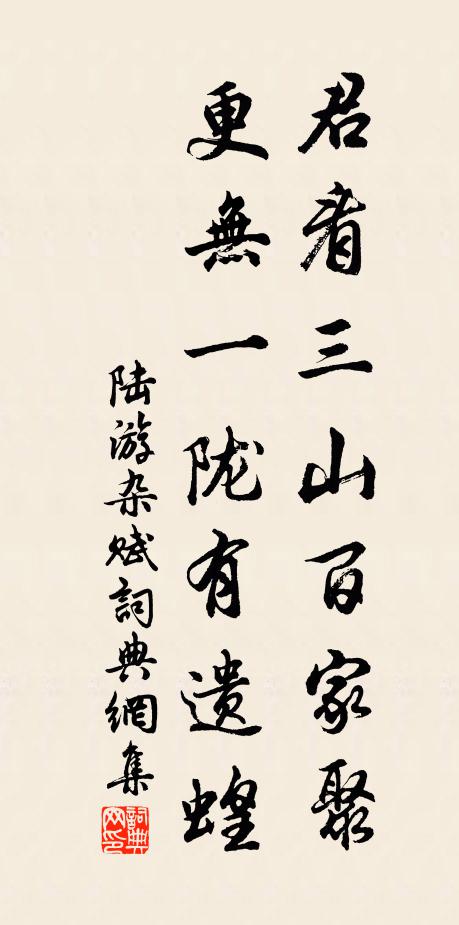 君看三山百家聚
更無一陇有遗蝗
陆游杂赋詞典網集
詞典网印